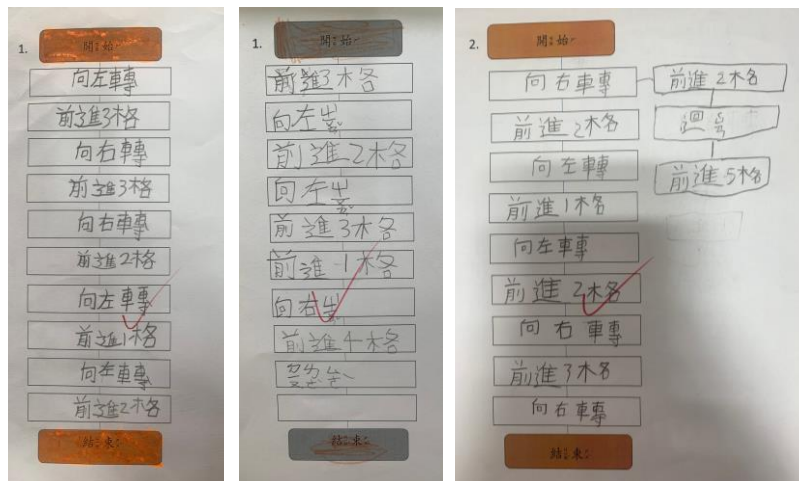 1.
開始
向左轉
前進3格
向右轉
前進3格
向右轉
前進2格
向左轉
前進1格
向左轉
前進2格
結束
1.
開始
前進3格
向左ㄓㄨㄢˇ
前進2格
向左ㄓㄨㄢˇ
前進3格
前進1格
向右ㄓㄨㄢˇ
前進4格
結束
2.
開始
向右轉
前進2格
向左轉
前進1格
向左轉
前進2格
向右轉
前進3格
向右轉
結束
前進2格
迴
前進5格